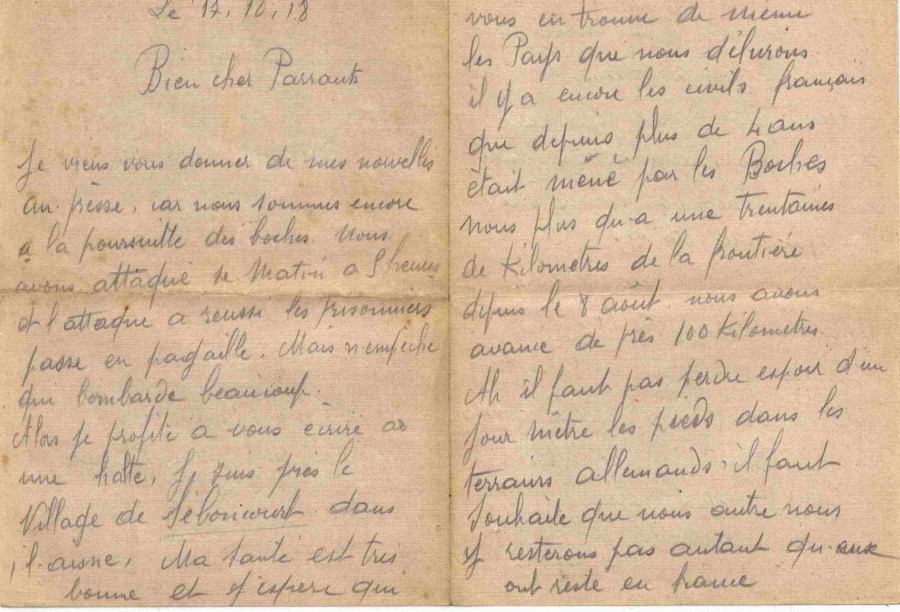 Le 17.10.18
Bien cher Parrants
Je viens vous donner de mes nouvelles
au présse, car nous sommes encore
a la poursuitte des boches. Nous
avons attaqué se Matin a 5 heures
et l'attaque a reussi les prisonniers
passe en pagaille. Mais n'empeche
qui bombarde beaucoup.
Alors je profite a vous écrire as
une halte. Jy suis près le
Village de Seboncourt dans
l.aisne, Ma santé est très
bonne et j'espere qui
vous en trouve de meme
les Pays que nous délivrons
il y a encore les civils français
que depuis plus de 4 ans
était mené par les Boches
nous plus qu-a une trentaines
de Kilometres de la frontière
depuis le 8 août nous avons
avance de près 100 Kilometres
Ah il faut pas perdre espoir d'un
jour mêtre les pieds dans les
terrains allemands, il faut
souhaite que nous autre nous
y resterons pas autant qu-aux
ont reste en france